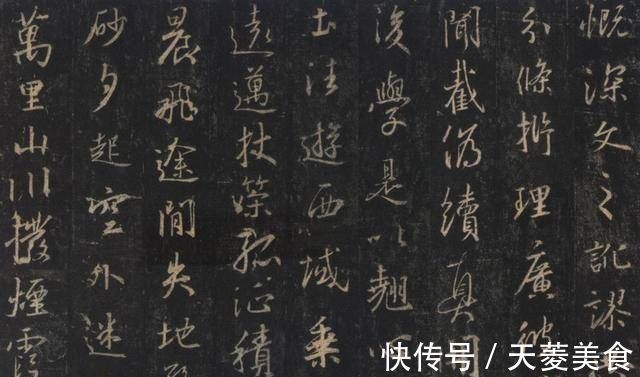 慨深文之訛謬
分條析理廣彼
聞截偽續真開
後學是以翹心
土往遊西域乘
遠邁杖策孤征積
晨飛途間失地
砂夕起空外迷
萬里山川撥煙霞
快传号 / 天菱美食